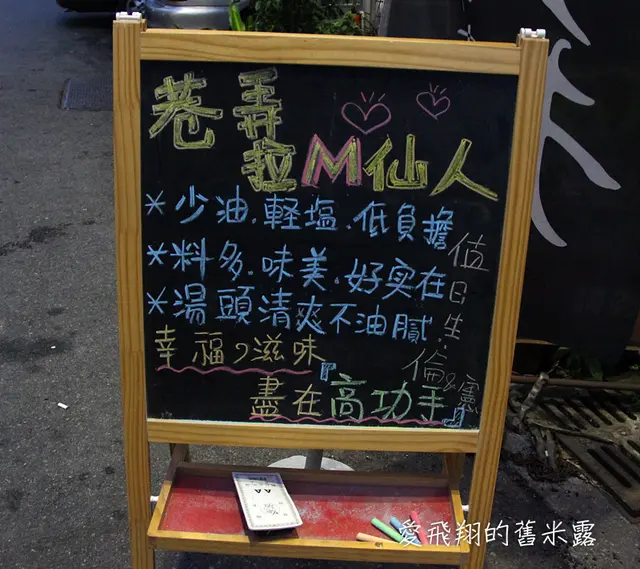 巷弄
拉M仙人
*少油.軽塩.低負擔
*料多.味美.好实在
*湯頭清爽不油膩.
幸福の滋味
盡在『高功手』
值日生:
倫&憲
AA
愛飛翔的舊米露